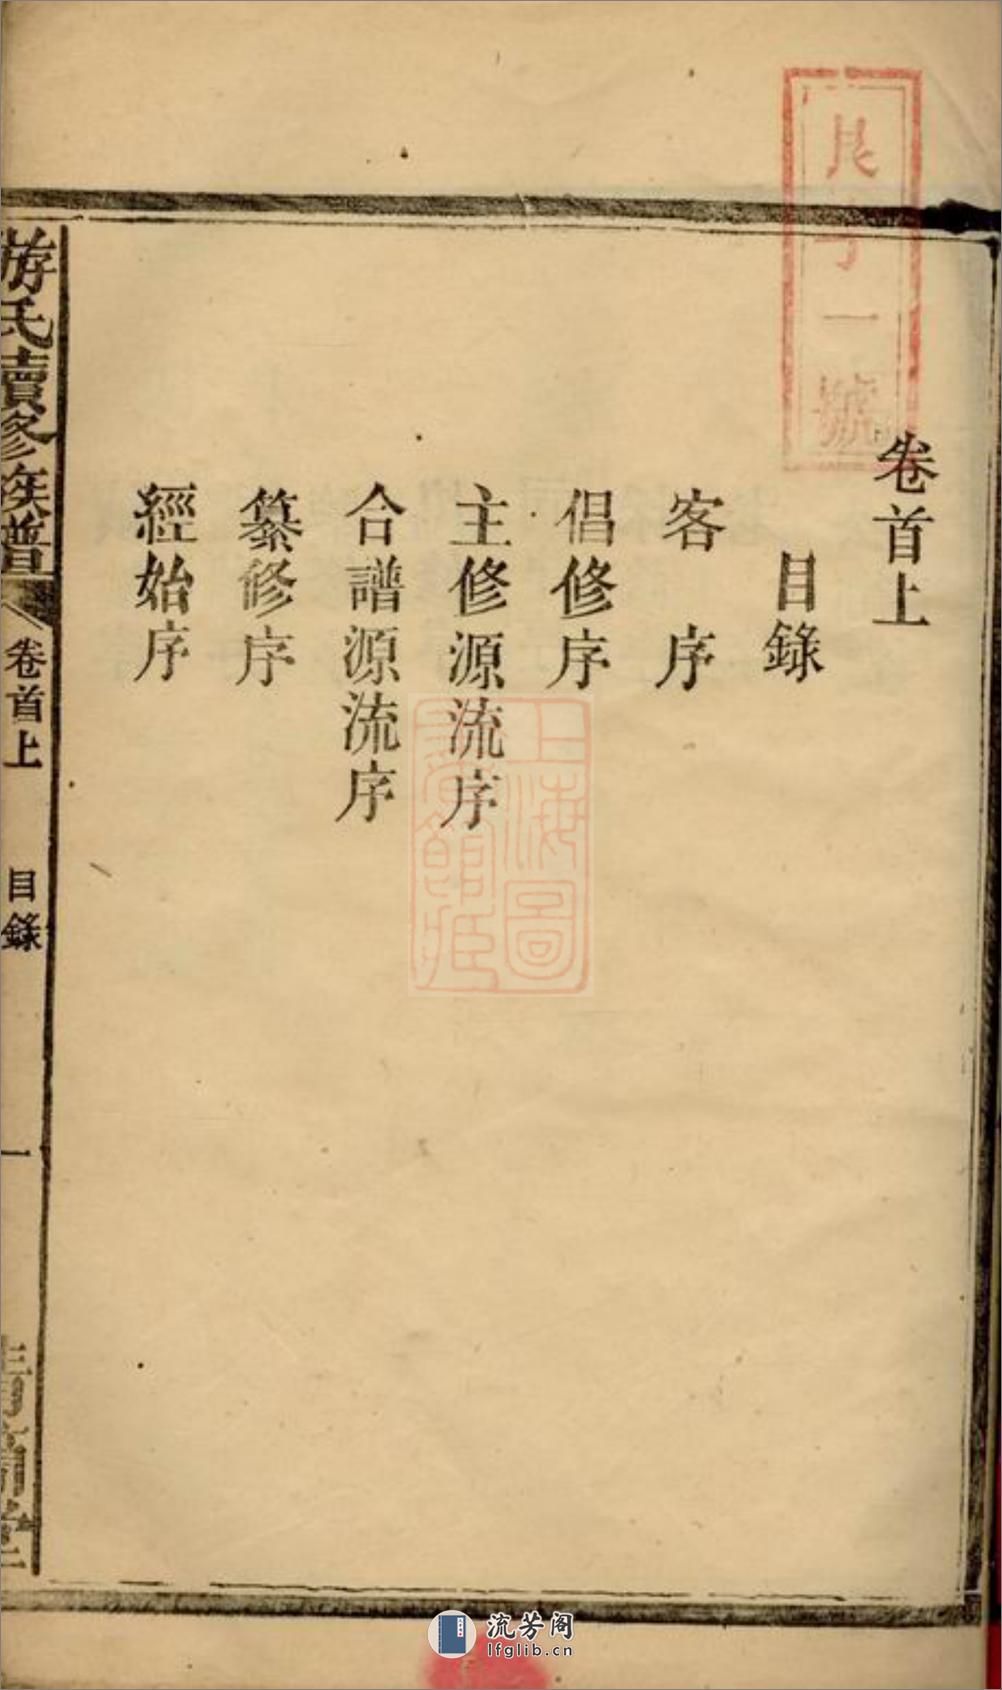 卷首上
目錄
客序
倡修序
主修源流序
合譜源流序
纂修序
經始序
游氏續修族譜
卷首上
目錄
一
字一號
上海圖
書館藏
流芳阁
lfglib.cn